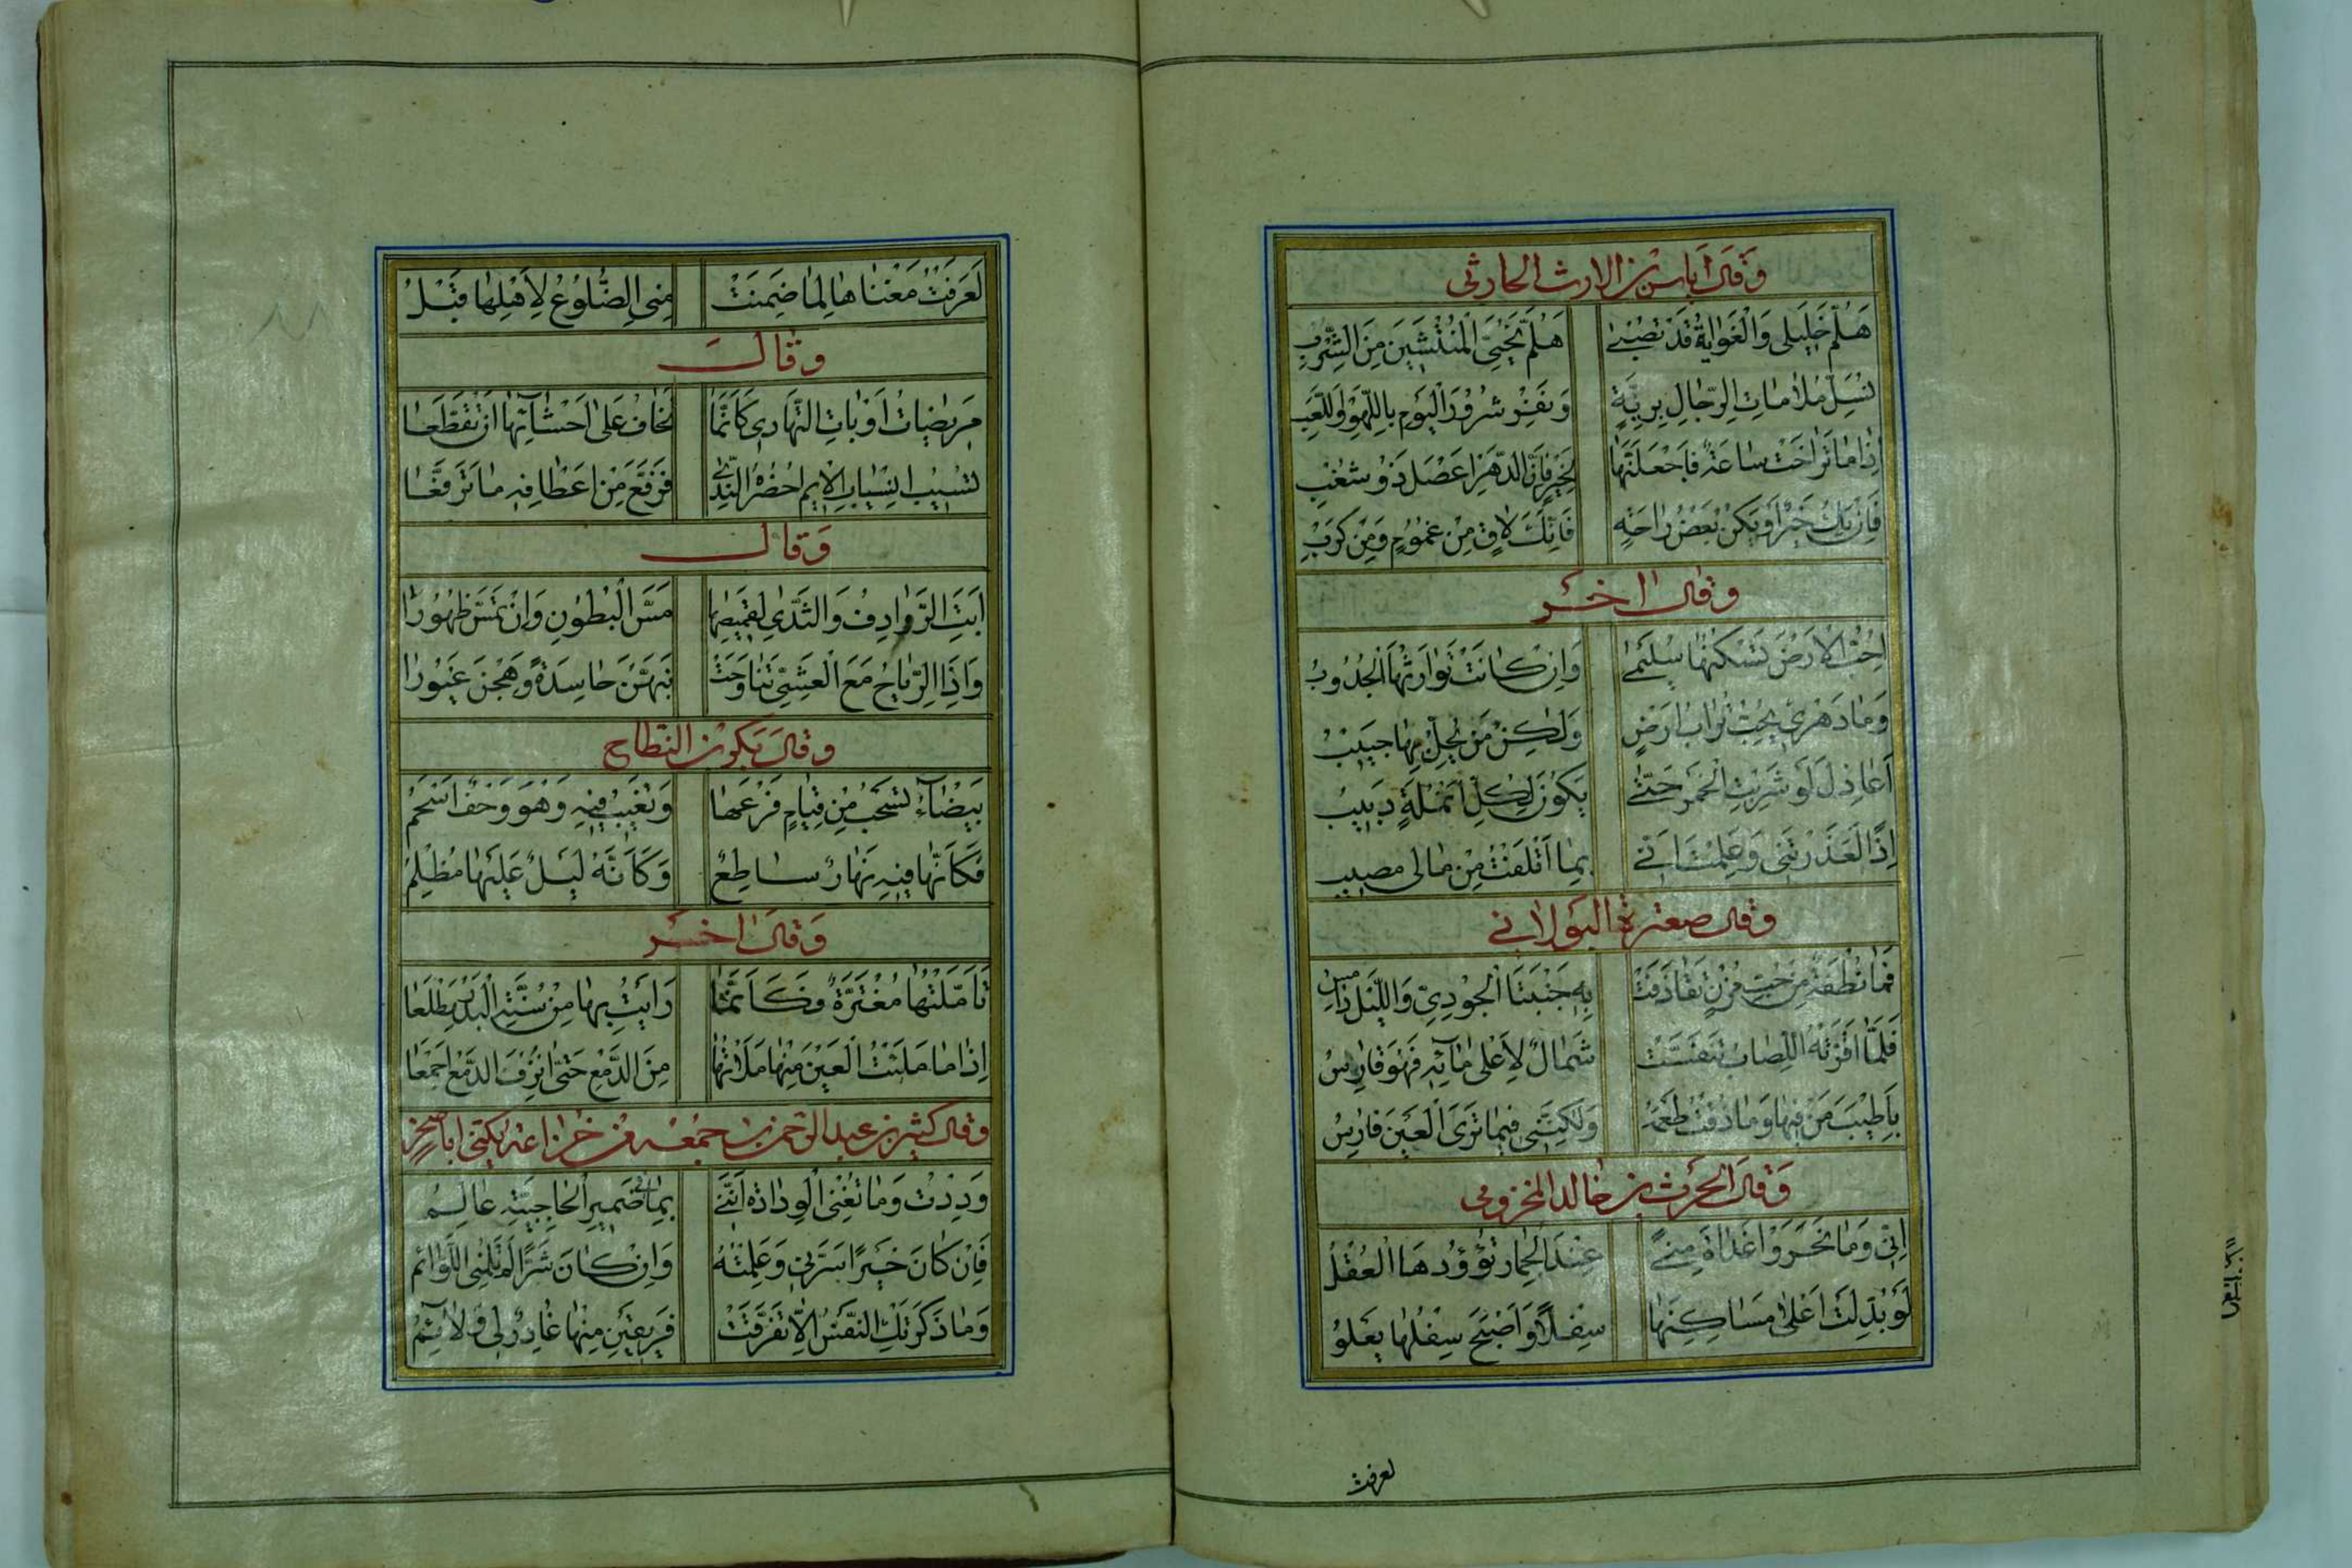 وَقَالَ اِيَاسُ بْنُ الارث الحارثى
هَلُمَّ خَلِيلى وَالْغَوَايَةُ قَدْ تُصْبِى هَلُمَّ نُحَيِّى الْمُنْتَشِينَ مِنَ الشَّرْبِ
نُسَلِّ مَلَامَاتِ الرِّجَالِ بِرِيَّةٍ وَنَفْرِ شُرُورَ الْيَوْمِ بِاللَّهْوِ وَاللَّعِبِ
اِذَا مَا تَرَاخَتْ سَاعَةٌ فَاجْعَلَنَّهَا لِخَيْرٍ فَاِنَّ الدَّهْرَ اَعْصَلُ ذُو شَغْبِ
فَاِنْ يَكُ خَيْرٌ اَوْ يَكُنْ بَعْضُ رَاحَةٍ فَاِنَّكَ لَاقٍ مِنْ غُمُومٍ وَمِنْ كَرْبِ
وقال اخَر
اُحِبُّ الْاَرْضَ تَسْكُنُهَا سُلَيْمٰى وَاِنْ كَانَتْ تَوَارَثُهَا الْجُدُوبُ
وَمَا دَهْرِى بِحُبِّ تُرَابِ اَرْضٍ وَلٰكِنْ مَنْ يَحِلُّ بِهَا حَبِيبُ
اَعَاذِلَ لَوْ شَرِبْتِ الْخَمْرَ حَتّٰى يَكُونَ لِكُلِّ اَنْمُلَةٍ دَبِيبُ
اِذًا لَعَذَرْتِنى وَعَلِمْتِ اَنِّى بِمَا اَتْلَفْتُ مِنْ مَالى مصيب
وقال صعترة البولانى
فَمَا نُطْفَةٌ مِنْ حَبِّ مُزْنٍ تَقَاذَفَتْ بِهِ جَنْبَتَا الْجُودِىِّ وَاللَّيْلُ دَامِسُ
فَلَمَّا اَقَرَّتْهُ اللِّصَابُ تَنَفَّسَتْ شَمَالٌ لِاَعْلٰى مَائِهِ فَهْوَ قَارِسُ
بِاَطْيَبَ مِنْ فِيهَا وَمَا ذُقْتُ طَعْمَهُ وَلٰكِنَّنِى فِيمَا تَرَى الْعَيْنُ فَارِسُ
وَقَالَ الحَرث بن خالد المخزومى
اِنِّى وَمَا نَحَرُوا غَدَاةَ مِنًى عِنْدَ الْجِمَارِ تَؤُودُهَا الْعُقْلُ
لَوْ بُدِّلَتْ اَعْلٰى مَسَاكِنِهَا سِفْلًا وَاَصْبَحَ سِفْلُهَا يَعْلُو
لعرفت
لَعَرَفْتُ مَغْنَاهَا لِمَا ضَمِنَتْ مِنِّى الضُّلُوعُ لِاَهْلِهَا قَبْلُ
وقالَ
مَرِيضَاتُ اَوْبَاتِ التَّهَادِى كَاَنَّمَا تَخَافُ عَلٰى اَحْشَائِهَا اَنْ تَقَطَّعَا
تَسِيبُ انْسِيَابَ الْاَيْمِ اَخْضَرَهُ النَّدٰى فَرَفَّعَ مِنْ اَعْطَافِهِ مَا تَرَفَّعَا
وَقال
اَبَتِ الرَّوَادِفُ وَالثُّدِىُّ لِقُمْصِهَا مَسَّ الْبُطُونِ وَاَنْ تَمَسَّ ظُهُورَا
وَاِذَا الرِّيَاحُ مَعَ الْعَشِىِّ تَنَاوَحَتْ نَبَّهْنَ حَاسِدَةً وَهِجْنَ غَيُورَا
وقالَ بَكر بن النطاح
بَيْضَاءُ تَسْحَبُ مِنْ قِيَامٍ فَرْعَهَا وَتَغِيبُ فِيهِ وَهْوَ وَحْفٌ اَسْحَمُ
فَكَاَنَّهَا فِيهِ نَهَارٌ سَاطِعٌ وَكَاَنَّهُ لَيْلٌ عَلَيْهَا مُظْلِمُ
وَقَالَ اخَر
تَاَمَّلْتُهَا مُغْتَرَّةً فَكَاَنَّمَا رَاَيْتُ بِهَا مِنْ سُنَّةِ الْبَدْرِ مَطْلَعَا
اِذَا مَا مَلَئْتُ الْعَيْنَ مِنْهَا مَلَاْتُهَا مِنَ الدَّمْعِ حَتّٰى اَنْزِفَ الدَّمْعَ اَجْمَعَا
وقال كثير بن عبد الرحمن بن جمعه من خزاعه يكنى ابا صخر
وَدِدْتُ وَمَا تُغْنِى الْوِدَادَةُ اَنَّنِى بِمَا فى ضَمِيرِ الْحَاجِبِيَّةِ عَالِمُ
فَاِنْ كَانَ خَيْرًا سَرَّنِى وَعَلِمْتُهُ وَاِنْ كَانَ شَرًّا لَمْ تَلُمْنِى اللَّوَائِمُ
وَمَا ذَكَرَتْكِ النَّفْسُ اِلَّا تَفَرَّقَتْ فَرِيقَيْنِ مِنْهَا عَاذِرٌ لِى وَلَائِمُ